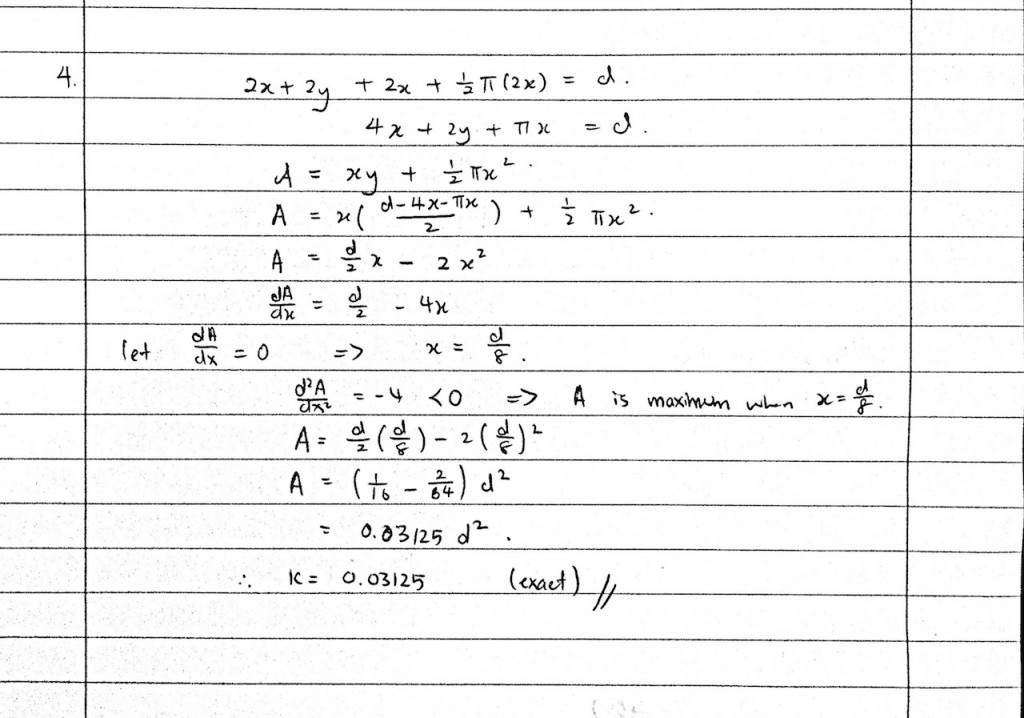 4. 2x + 2y + 2x + ½π(2x) = d.
4x + 2y + πx = d.
A = xy + ½πx².
A = x((d-4x-πx)/2) + ½ πx².
A = d/2 x - 2x²
dA/dx = d/2 - 4x
let dA/dx = 0 => x = d/8.
d²A/dx² = -4 < 0 => A is maximum when x = d/8.
A = d/2 (d/8) - 2(d/8)²
A = (1/16 - 2/64) d²
= 0.03125 d².
∴ k = 0.03125 (exact) //